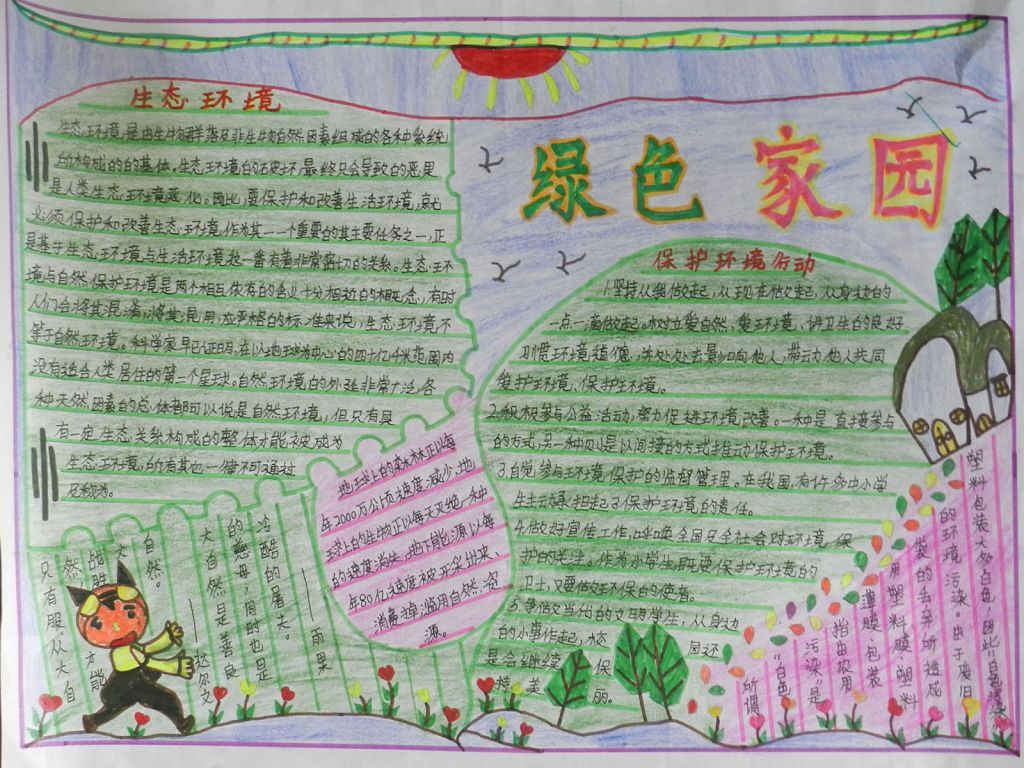 绿色家园
生态环境
生态环境,是由生物群落及非生物自然因素组成的各种系统
所构成的的基体。生态环境的破坏,最终只会导致的恶果
是人类生态环境恶化。因此,要保护和改善生活环境,就
必须保护和改善生态环境,作为其一一个重要的其主要任务之一,正
是基于生态环境与生活环境是一番有着非常密切的关系。生态环
境与自然保护环境是两个相互依存的含义十分相近的概念,有时
人们会将其混淆,将其混用,应严格的标准来说,生态环境不
等于自然环境。科学家早已证明,在以地球为中心的四十亿千米范围内
没有适合人类居住的第二个星球。自然环境的外延非常广泛,各
种天然因素的总体都可以说是自然环境,但只有具
有一定生态关系构成的整体才能被成为
生态环境,所有其他一律不可通过
保护环境行动
1.坚持从我做起,从现在做起,从身边的
一点一滴做起。树立爱自然,爱环境,讲卫生的良好
习惯环境道德,并处处去影响他人,带动他人共同
爱护环境,保护环境。
2.积极参与公益活动,努力促进环境改善。一种是直接参与
的方式,另一种则是以间接的方式推动保护环境。
3.自觉参与环境保护的监督管理。在我国,有许多中小学
生主动承担起了保护环境的责任。
4.做好宣传工作,呼唤全国及全社会对环境保
护的关注。作为小学生,既要保护环境的
卫士,又要做好环保的使者。
5.争做文当代的文明学生,从身边
的小事作起,
家园还
是会继续保
持美丽。
地球上的森林正以每
年2000万公顷速度减少,地
球上的生物正以每天灭绝一种
的速度消失,地下能源以每
年80亿速度被开采出来、
消毒掉,滥用自然,资
源。
冷酷的暑天。
——雨果
大自然是善良
的慈母,同时也是
只有服从大自
然,才能
战胜大
自然。
——达尔文
所谓
“白色
污染”是
指由农用
薄膜、包装
用塑料膜、塑料
袋的丢弃所造成
的环境污染。由于废旧
塑料包装大多白色,因此“白色